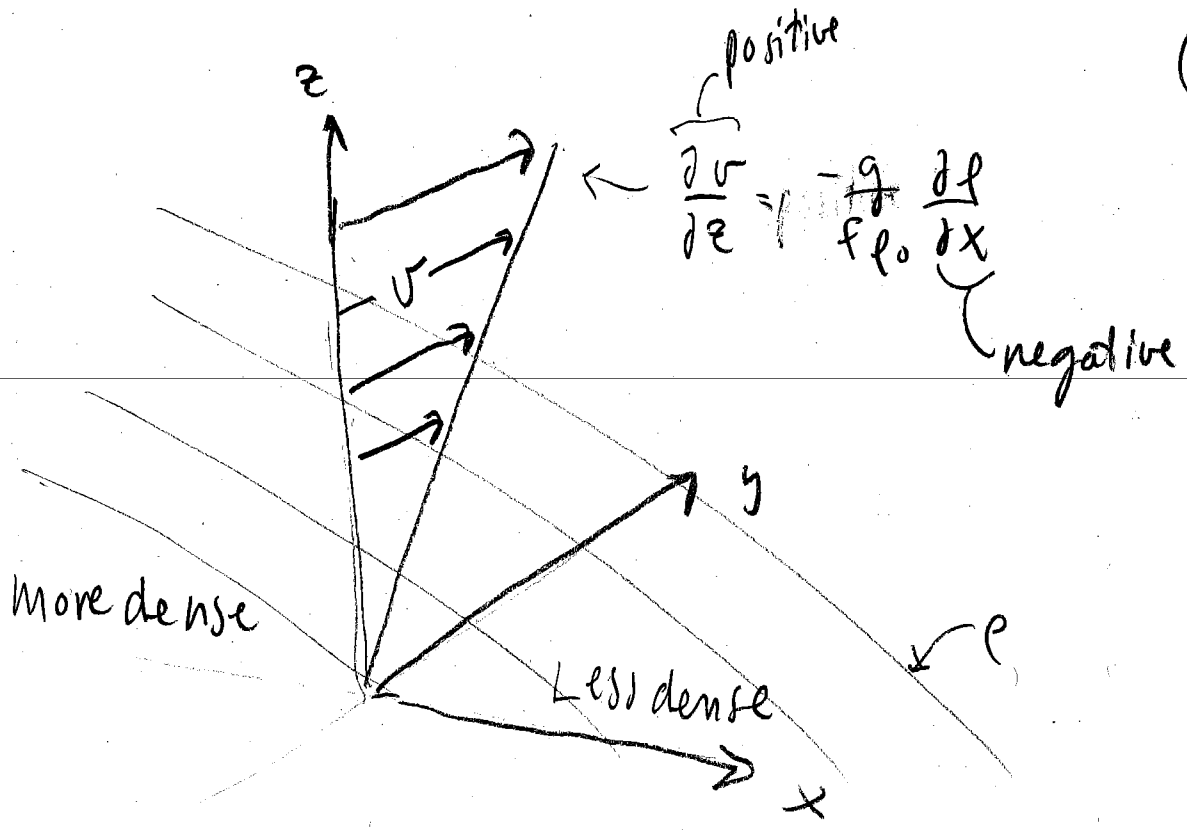 positive
z
∂v/∂z = -g/fρ₀ ∂ρ/∂x
v
negative
y
More dense
ρ
Less dense
x